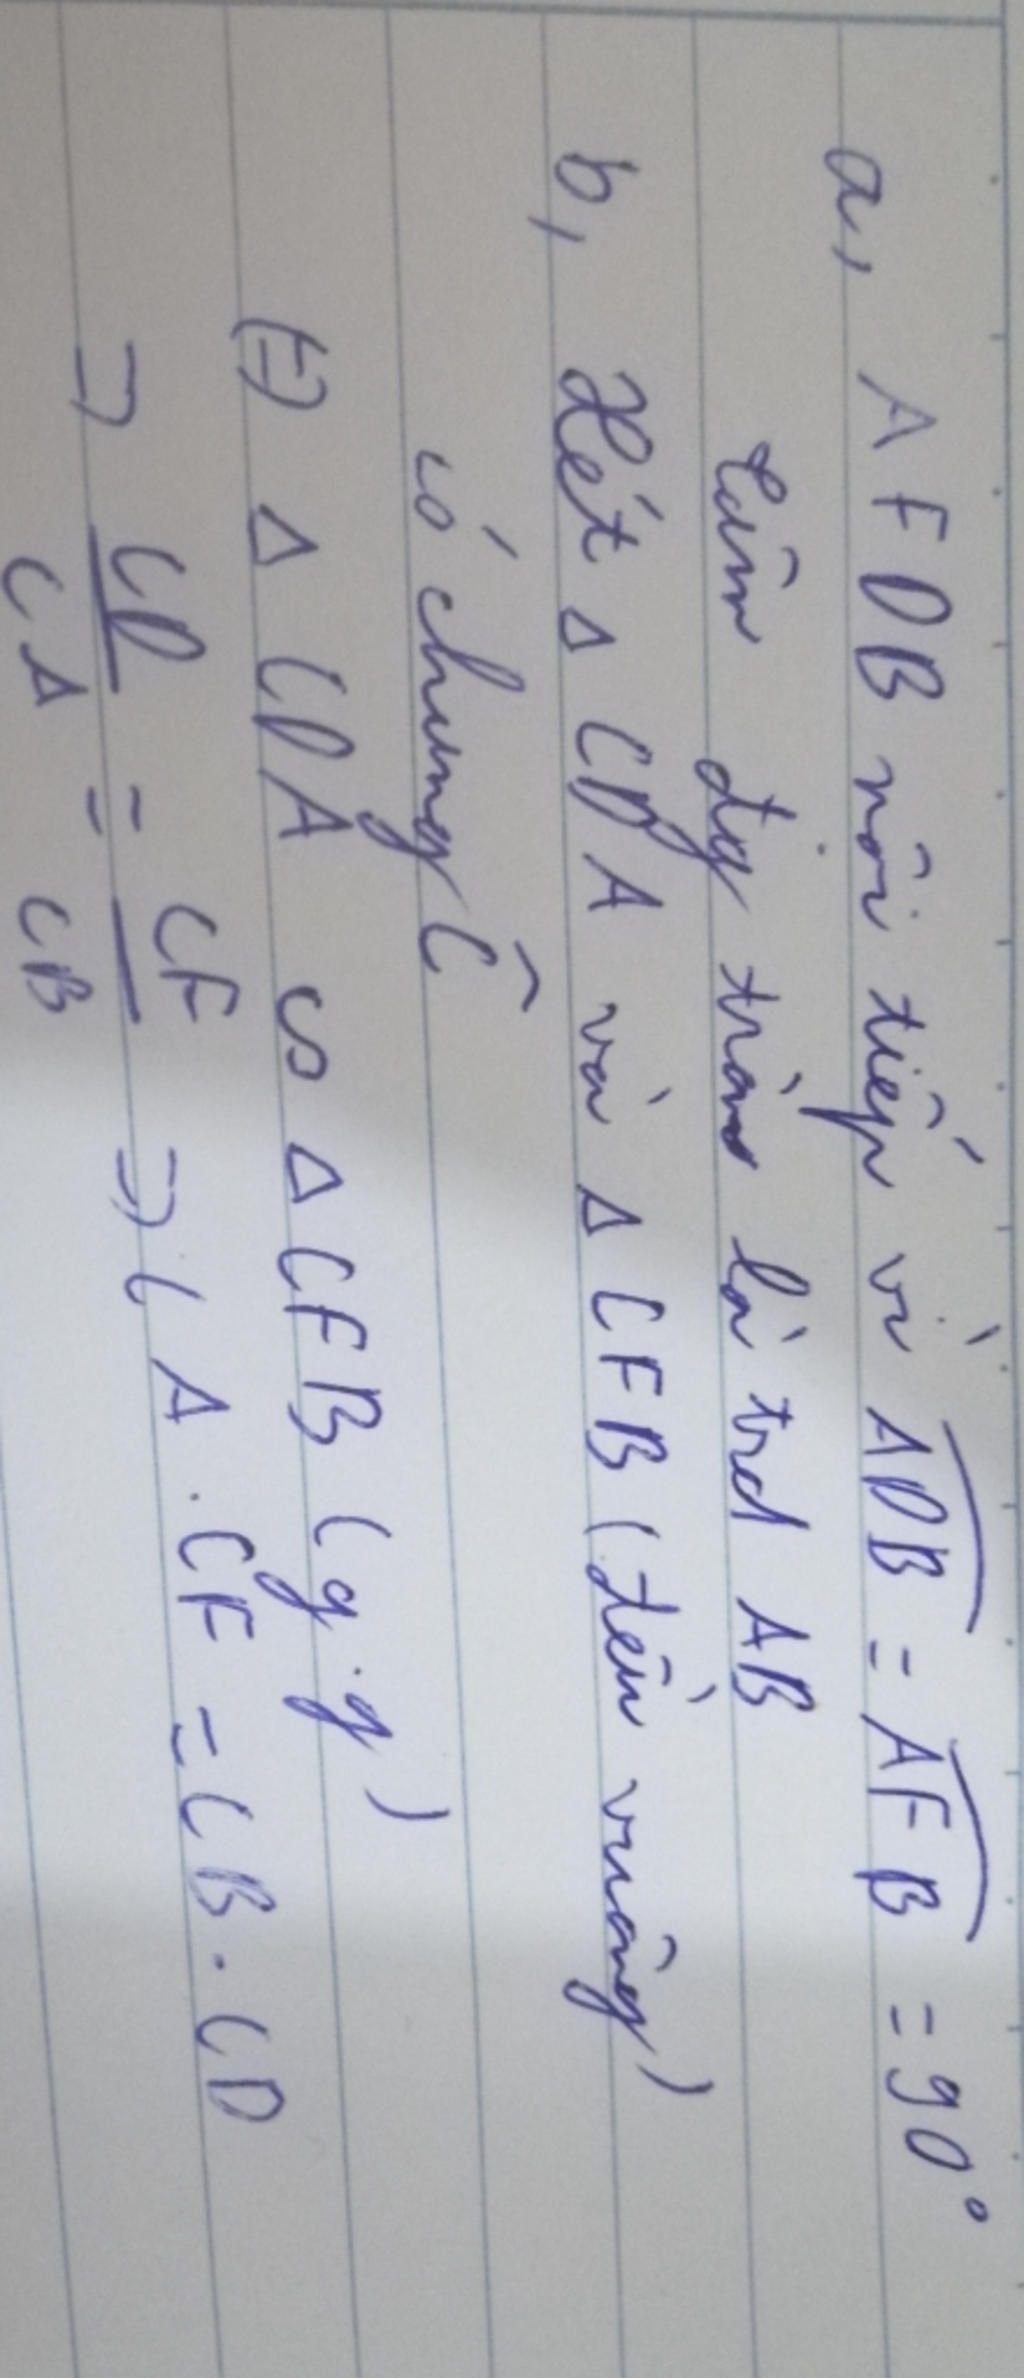 a, AFDB nội tiếp vì ADB = AFB = 90°
Tâm đg tròn là trđ AB
b, Xét Δ CDA và Δ CFB (đều vuông)
có chung Ĉ
=) Δ CDA ∽ Δ CFB (g.g)
=) CD/CA = CF/CB =) CA . CF = CB . CD